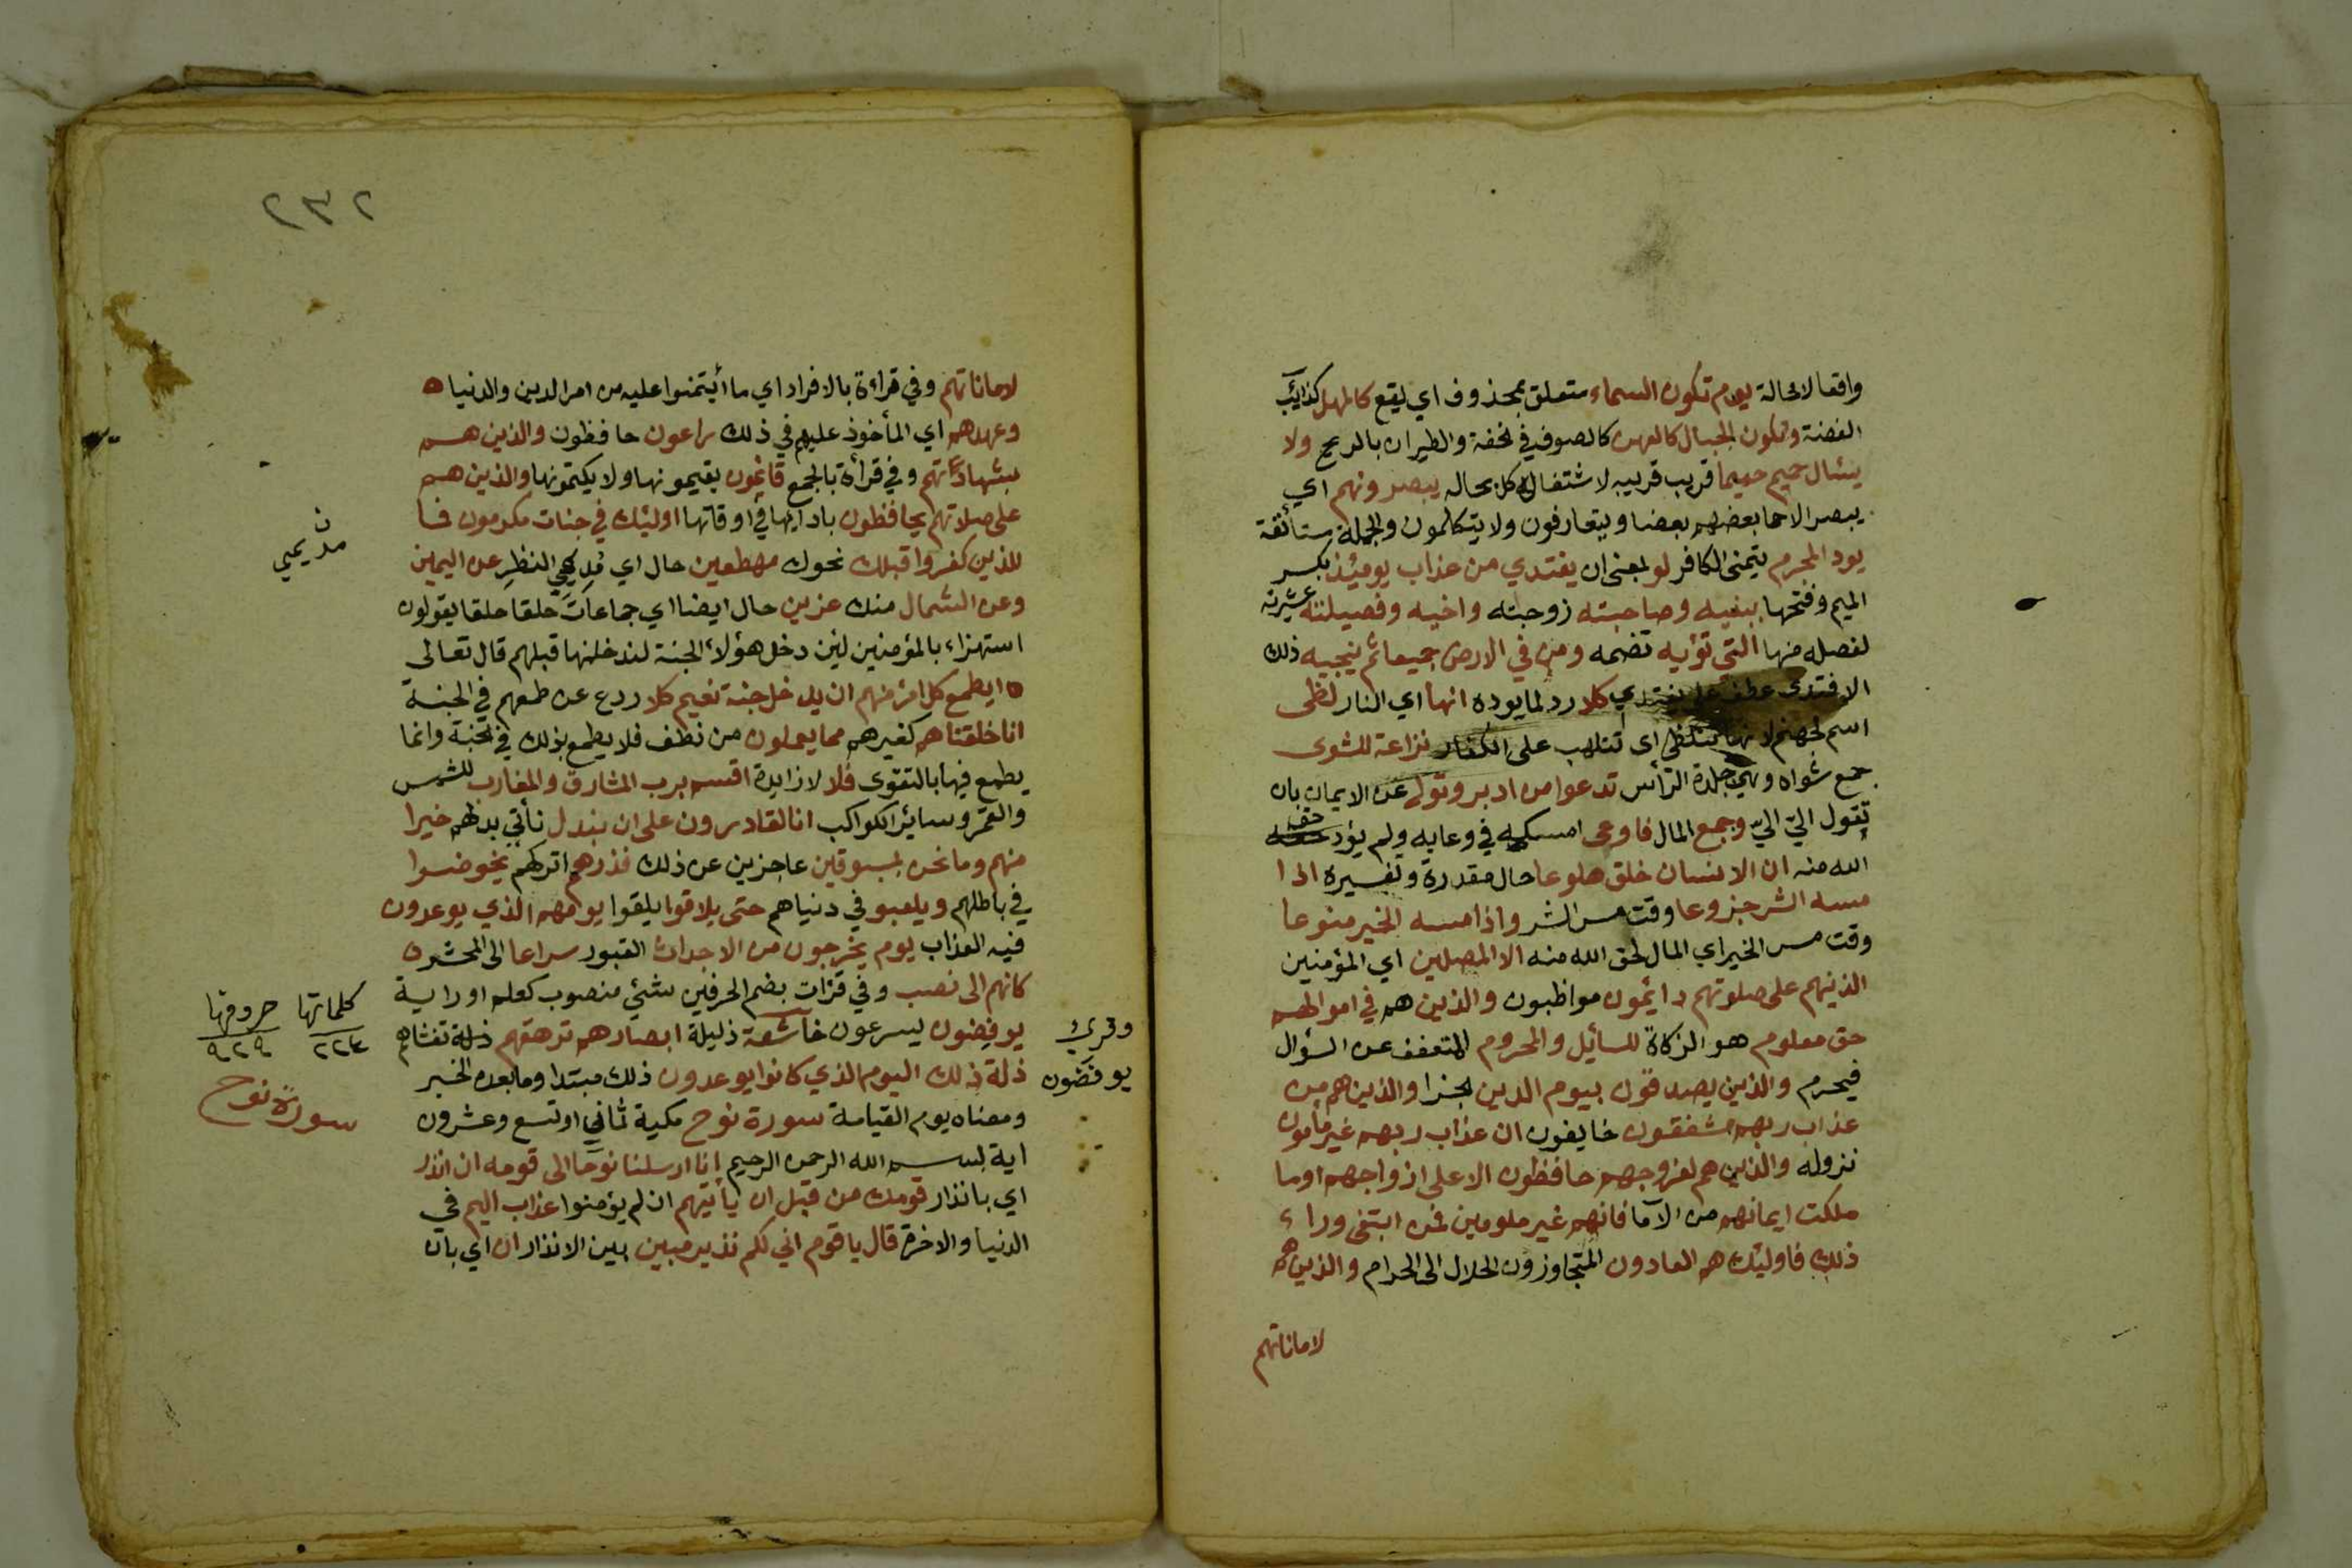 واقعا لا محالة يوم تكون السماء متعلق بمحذوف اي يقع كالمهل كذائب
الفضة وتكون الجبال كالعهن كالصوف في الخفة والطيران بالريح ولا
يسئال حميم حميما قريب قريبه لاشتغال كل بحاله يبصرونهم اي
يبصر الاحما بعضهم بعضا ويتعارفون ولا يتكالمون والجملة مستأنفة
يود المجرم يتمنى الكافر لو بمعنى ان يفتدي من عذاب يومئذ بكسر
الميم وفتحها ببنيه وصاحبته زوجته واخيه وفصيلته عشيرته
لفصله منها التي تؤيه تضمه ومن في الارض جميعا ثم ينجيه ذلك
الافتدى عطف على يفتدي كلا رد لما يوده انها اي النار لظى
اسم لجهنم لانها تتلظى اى تتلهب على الكفار نزاعة للشوى
جمع شواه وهي جلدة الرأس تدعوا من ادبر وتولى عن الايمان بان
تقول اليّ اليّ وجمع المال فاوعى امسكه في وعايه ولم يؤد حق
الله منه ان الانسان خلق هلوعا حال مقدرة وتفسيره اذا
مسه الشر جزوعا وقت مس الشر واذا مسه الخير منوعا
وقت مس الخير اي المال لحق الله منه الا المصلين اي المؤمنين
الذينهم على صلوتهم دائمون مواظبون والذين هم في اموالهم
حق معلوم هو الزكاة للسائيل والمحروم المتعفف عن السؤال
فيحرم والذين يصدقون بيوم الدين الجزا والذين هم من
عذاب ربهم مشفقون خايفون ان عذاب ربهم غير مأمون
نزوله والذين هم لفروجهم حافظون الا على ازواجهم اوما
ملكت ايمانهم من الآما فانهم غير ملومين فمن ابتغى وراء
ذلك فاوليئك هم العادون المتجاوزون الحلال الى الحرام والذين هم
لاماناتهم
٢٣٢
لاماناتهم وفي قراءة بالافراد اي ما أيتمنوا عليه من امر الدين والدنيا ه
وعهدهم اي المأخوذ عليهم في ذلك راعون حافظون والذين هم
بشهاداتهم وفي قرأة بالجمع قائمون يقيمونها ولا يكتمونها والذين هم
على صلاتهم يحافظون بادايها في اوقاتها اوليئك في جنات مكرمون فما
للذين كفروا قبلك نحوك مهطعين حال اي مُدِيمِي النظرِ عن اليمين
وعن الشمال منك عزين حال ايضا اي جماعات حلقا حلقا يقولون
استهزاء بالمؤمنين لئن دخل هؤلاء الجنة لندخلنها قبلهم قال تعالى
ه ايطمع كل امرٍ منهم ان يدخل جنة نعيم كلا ردع عن طمعهم في الجنة
انا خلقناهم كغيرهم مما يعملون من نطف فلا يطمع بذلك في الجنة وانما
يطمع فيها بالتقوى فلا لا زايدة اقسم برب المشارق والمغارب للشمس
والقمر وسائر الكواكب انا لقادرون على ان نبدل نأتي بدلهم خيرا
منهم وما نحن بمسبوقين عاجزين عن ذلك فذرهم اتركهم يخوضوا
في باطلهم ويلعبو في دنياهم حتى يلاقوا يلقوا يومهم الذي يوعدون
فيه العذاب يوم يخرجون من الاجداث القبور سراعا الى المحشر ه
كانهم الى نصب وفي قرات بضم الحرفين شئي منصوب كعلم او راية
يوفضون يسرعون خاشعة ذليلة ابصارهم ترهقهم ذلة تغشاهم
ذلة ذلك اليوم الذي كانوا يوعدون ذلك مبتدا وما بعده الخبر
ومعناه يوم القيامة سورة نوح مكية ثماني اوتسع وعشرون
اية بسم الله الرحمن الرحيم إنا ارسلنا نوحا الى قومه ان انذر
اي بانذار قومك من قبل ان ياتيهم ان لم يؤمنوا عذاب اليم في
الدنيا والاخرة قال يا قوم اني لكم نذير مبين بين الانذار ان اي بان
كلماتها حروفها
٢٢٤ ٩٢٩
سورة نوح
وقرى
يوفضون